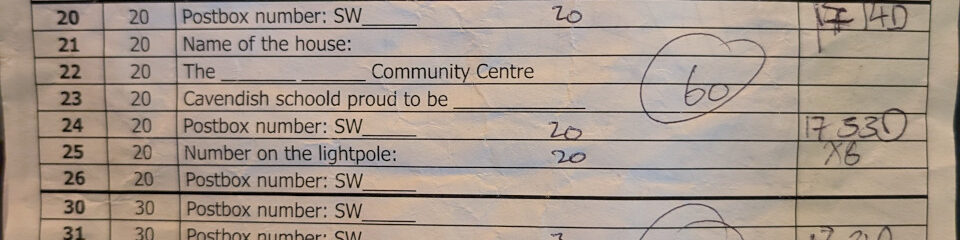 20 20 Postbox number: SW_____ 20 17 14D
21 20 Name of the house:
22 20 The _______ ______ Community Centre
23 20 Cavendish schoold proud to be ____________ 60
24 20 Postbox number: SW_____ 20 17 53D
25 20 Number on the lightpole: 20 X6
26 20 Postbox number: SW_____
30 30 Postbox number: SW_____
31 30 Postbox number: SW